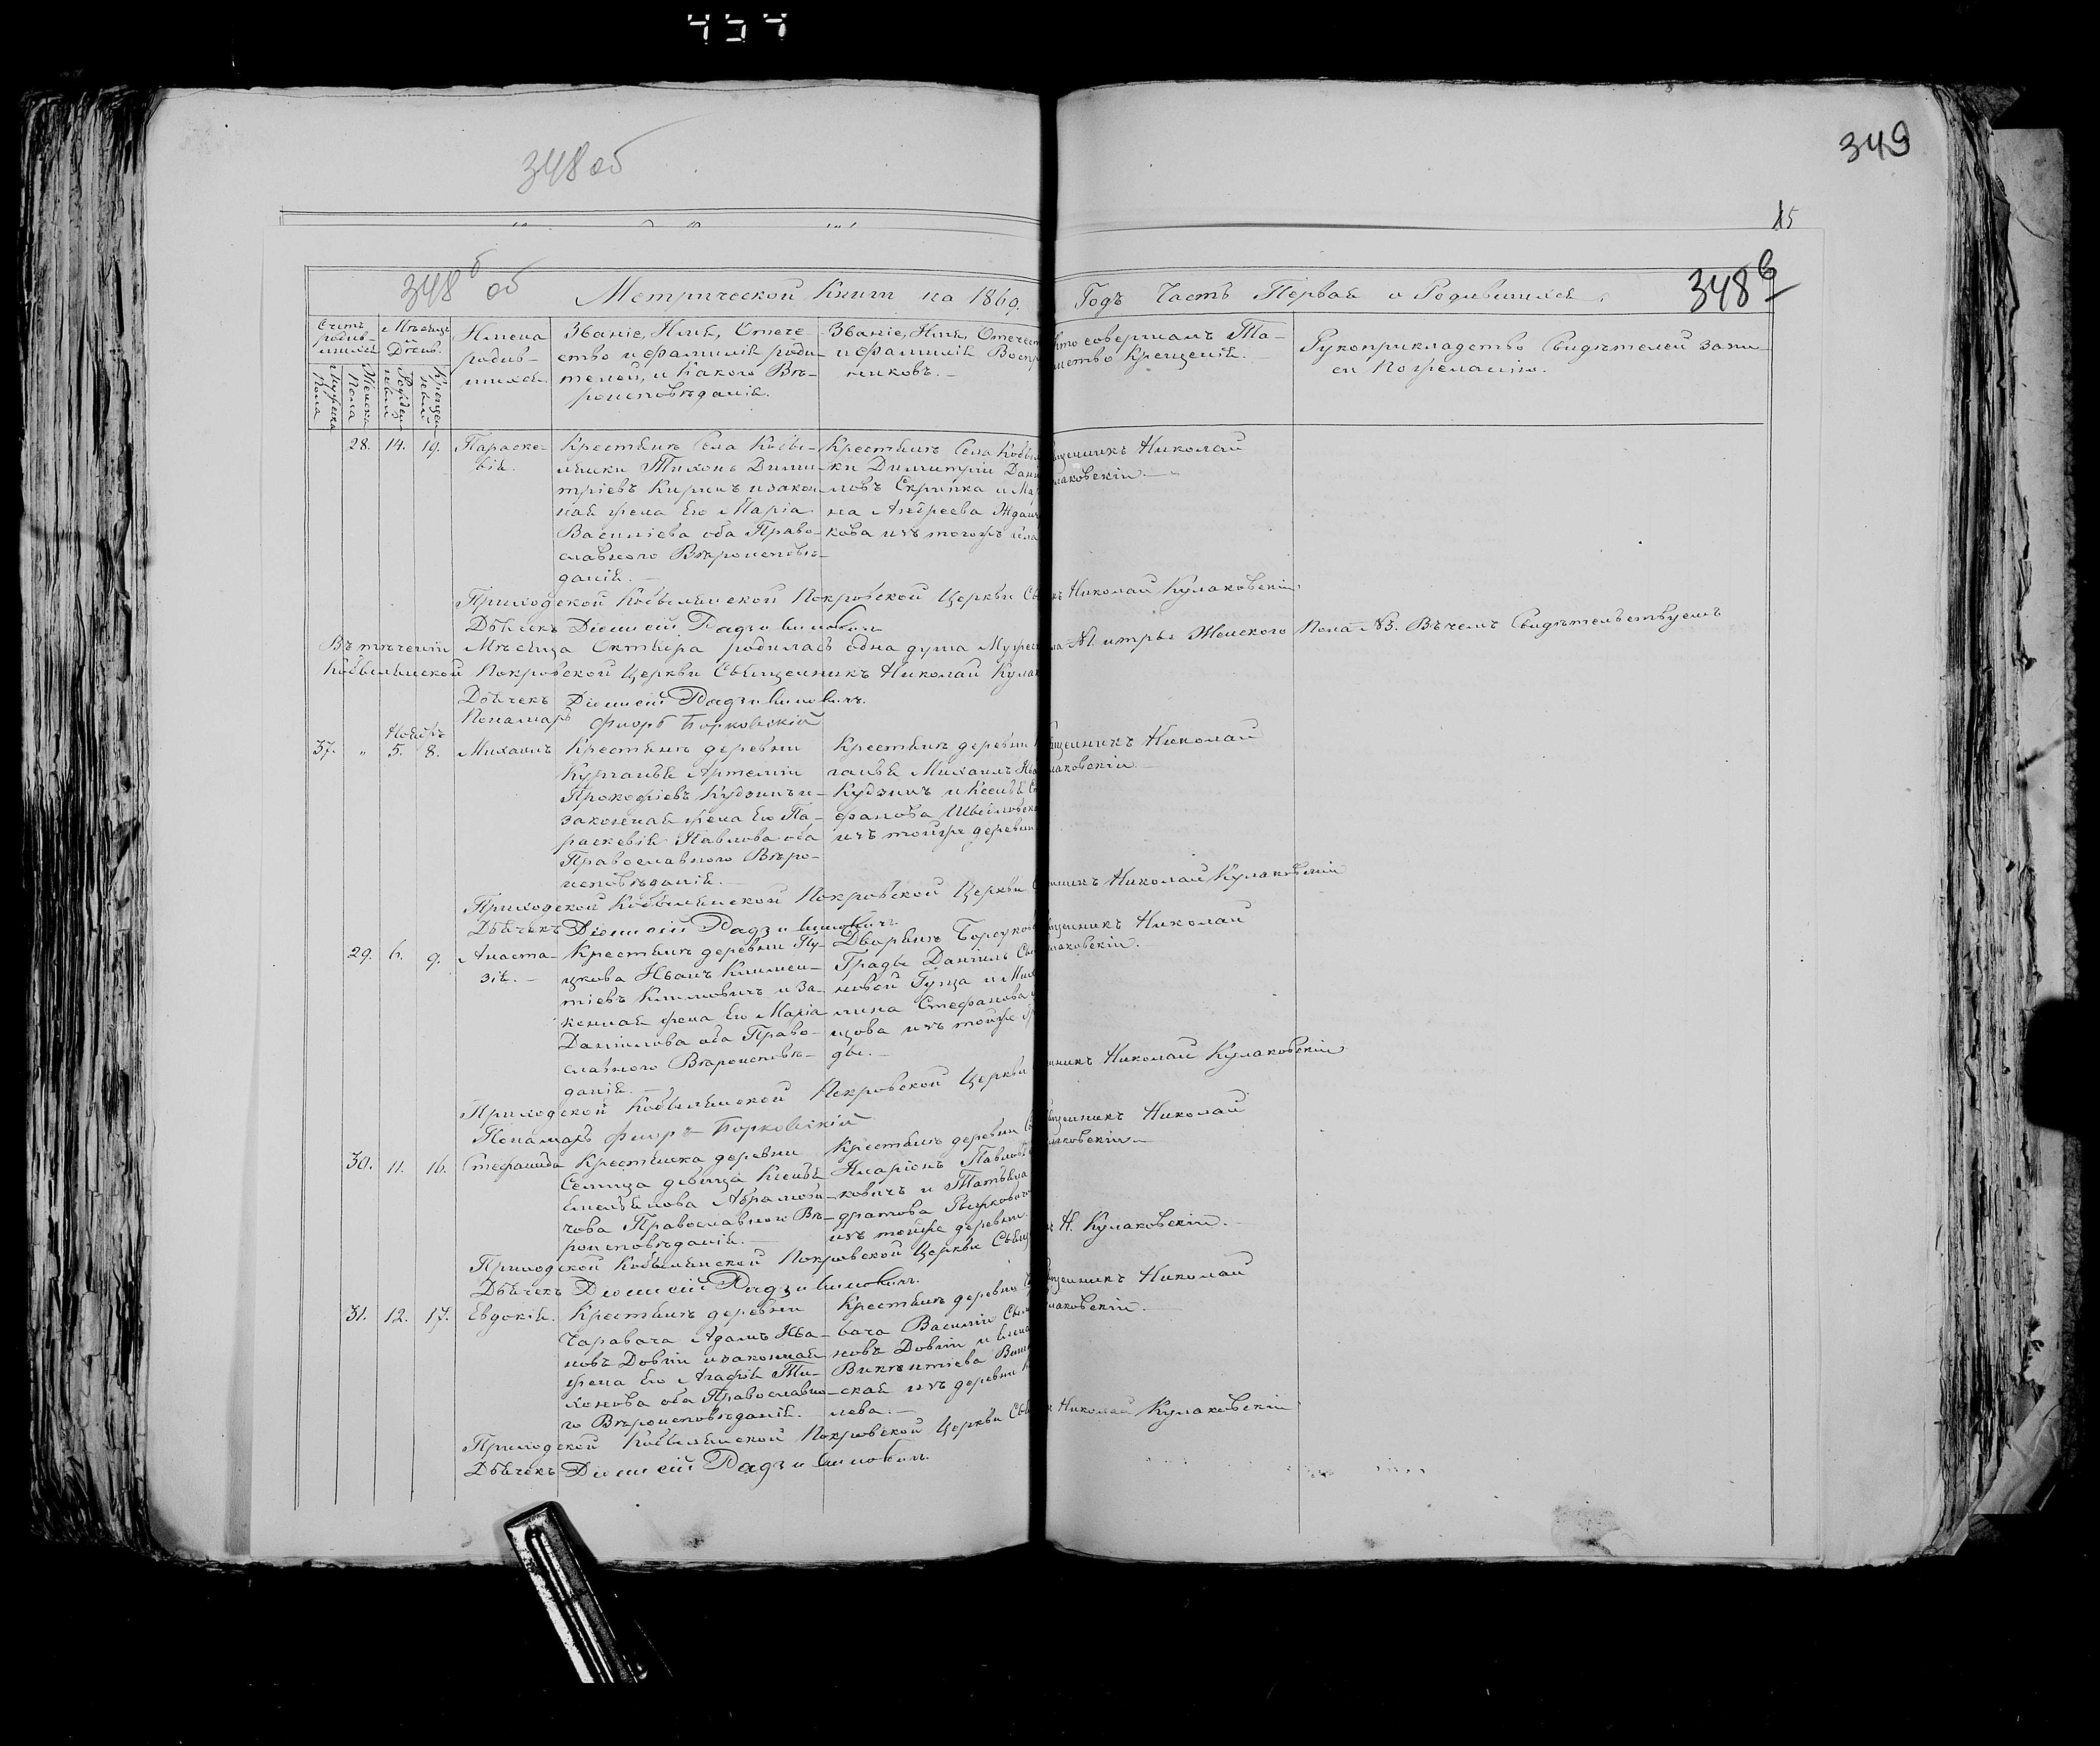 434
348 об
349
15
348 б об
348 в
Метрической Книги на 1869. Годъ Часть Первая о Родившихся.
Счетъ родив-шихся
Мужеска Пола
Женска Пола
Мѣсяцъ и День.
Рожденія
Крещенія
Имена родив-шихся
Званіе, Имя, Отече-
ство и фамилія роди-
телей, и какого Вѣ-
роисповѣданія.
Званіе, Имя, Отечест
и Фамилія Воспр
никовъ.
Кто совершалъ Та-
инство Крещенія.
Рукоприкладство Свидѣтелей запи-
си По желанію.
28. 14. 19. Параске-
вія.
Крестьянъ Села Кобы-
лянки Тихонъ Дими-
тріевъ Киричъ и закон-
ная жена Его Марія
Василіева оба Право-
славного Вѣроисповѣ-
данія.
Крестьянъ Села Кобыл
ки Димитрій Дані
ловъ Скрипка и Мар
на Андреева Ждан
кова изъ того жъ села
щенникъ Николай
лаковскій.
Приходской Кобылянской Покровской Церкви Св къ Николай Кулаковскій
Дьячекъ Діонисій Радзиминовичъ
Въ теченіи Мѣсяца Октября родилась одна душа Мужес ла №1. и три Женского Пола №3. Въ чемъ Свидѣтельствуемъ
Кобылянской Покровской Церкви Священникъ Николай Кулак
Дьячекъ Діонисій Радзиминовичъ.
Пономарь Флоръ Борковскій
Ноябрь
37. " 5. 8. Михаилъ
Крестьянъ деревни
Курганья Артемій
Прокофіевъ Кудзинъ и
законная жена Его Па-
раскевія Павлова оба
Православного Вѣро-
исповѣданія.
Крестьянъ деревни К
ганья Михаилъ Ива
Кудзинъ и Ксенія С
фанова
изъ той же деревни
щенникъ Николай
лаковскій.
Приходской Кобылянской Покровской Церкви нникъ Николай Кулаковскій
Дьячекъ Діонисій Радзиминовичъ
29. 6. 9. Анаста-
зія.
Крестьянъ деревни Пу-
цкова Иванъ Климен-
тіевъ Климовичъ и за-
конная жена Его Марія
Даніилова оба Право-
славного Вѣроисповѣ-
данія.
Дворянъ
Грады Даніилъ
новой Гуща и Мих
лина Стефанова
цова изъ той же
ды.
щенникъ Николай
лаковскій.
Приходской Кобылянской Покровской Церкви нникъ Николай Кулаковскій
Пономарь Флоръ Борковскій
30. 11. 16. Стефанида
Крестьянка деревни
Селища дѣвица Ксенія
Емельянова Абрамови-
чова Православного Вѣ-
роисповѣданія.
Крестьянъ деревни С
Иларіонъ Павловъ
ковичъ и Татьяна
дратова Рыжкович
изъ той же деревни
щенникъ Николай
лаковскій.
Приходской Кобылянской Покровской Церкви Свящ ъ Н. Кулаковскій.
Дьячекъ Діонисій Радзиминовичъ.
31. 12. 17. Евдокія.
Крестьянъ деревни
Чаравача Адамъ Ива-
новъ Довгій и законная
жена Его Агафія Ти-
хонова оба Православно-
го Вѣроисповѣданія.
Крестьянъ деревни Ча
вача Василій Сем
новъ Довгій и Елена
Викентіева
ская изъ деревни К
лева.
щенникъ Николай
лаковскій.
Приходской Кобылянской Покровской Церкви Свя къ Николай Кулаковскій
Дьячекъ Діонисій Радзиминовичъ.